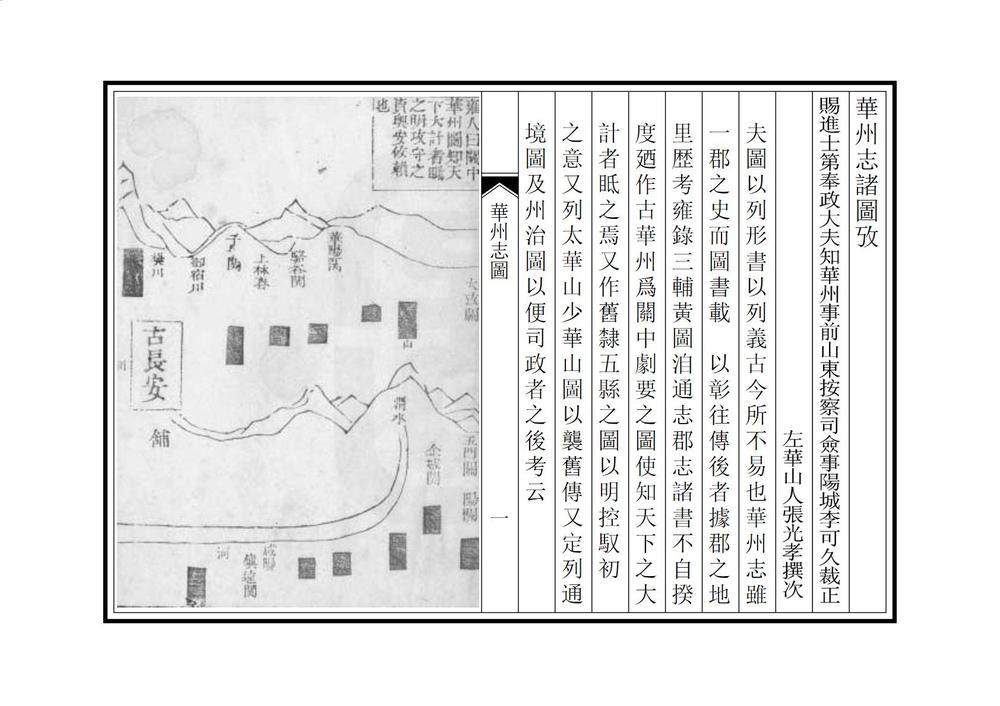 華州志諸圖攷
賜進士第奉政大夫知華州事前山東按察司僉事陽城李可久裁正
左華山人張光孝撰次
夫圖以列形書以列義古今所不易也華州志雖
一郡之史而圖書載　以彰往傳後者據郡之地
里歷考雍錄三輔黃圖洎通志郡志諸書不自揆
度廼作古華州爲關中劇要之圖使知天下之大
計者眡之焉又作舊隸五縣之圖以明控馭初
之意又列太華山少華山圖以襲舊傳又定列通
境圖及州治圖以便司政者之後考云
華州志圖
一
雍人曰關中
華州圖知天
下大計者眡
之明攻守之
資與安攸賴
也
華陽關
駱谷關
上林春
子關
御宿川
樊川
山
古長安
鋪
渭水
五門關
金城關
陽關
咸陽
鎮遠關
河